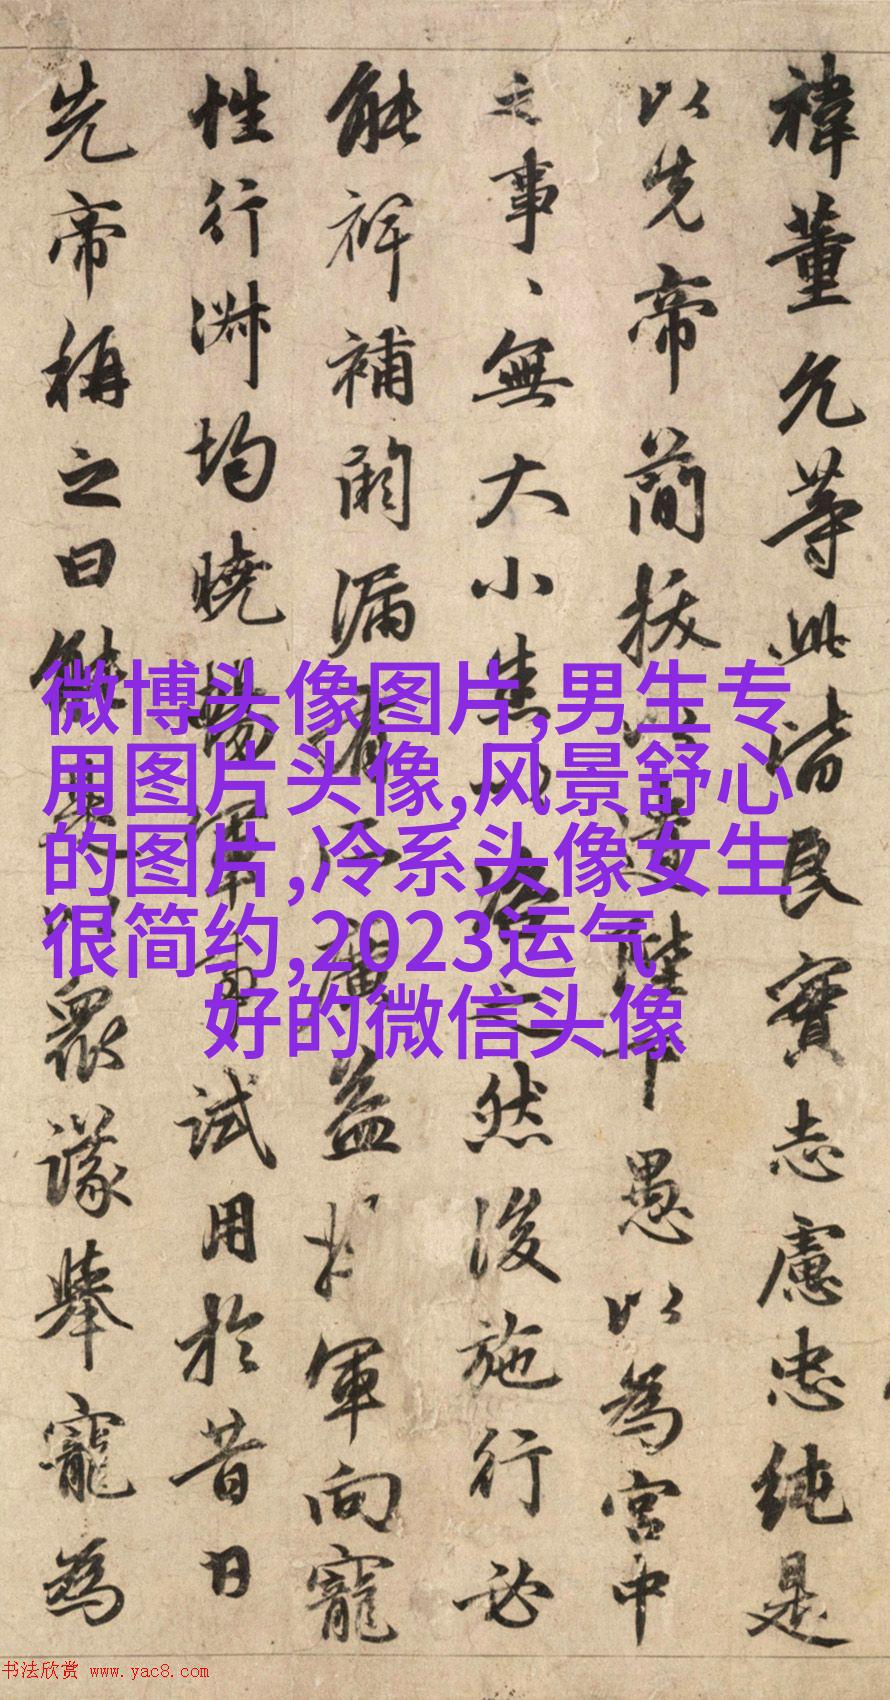 禕董允等此皆良實志慮忠純是
以先帝簡拔以遺陛下愚以為宮中
之事、無大小悉以咨之然後施行必
能裨補闕漏有所廣益將軍向寵
性行淑均曉暢軍事試用於昔日
先帝稱之曰能是以眾議舉寵為
微博头像图片,男生专
用图片头像,风景舒心
的图片,冷系头像女生
很简约,2023运气
好的微信头像
书法欣赏 www.yac8.com